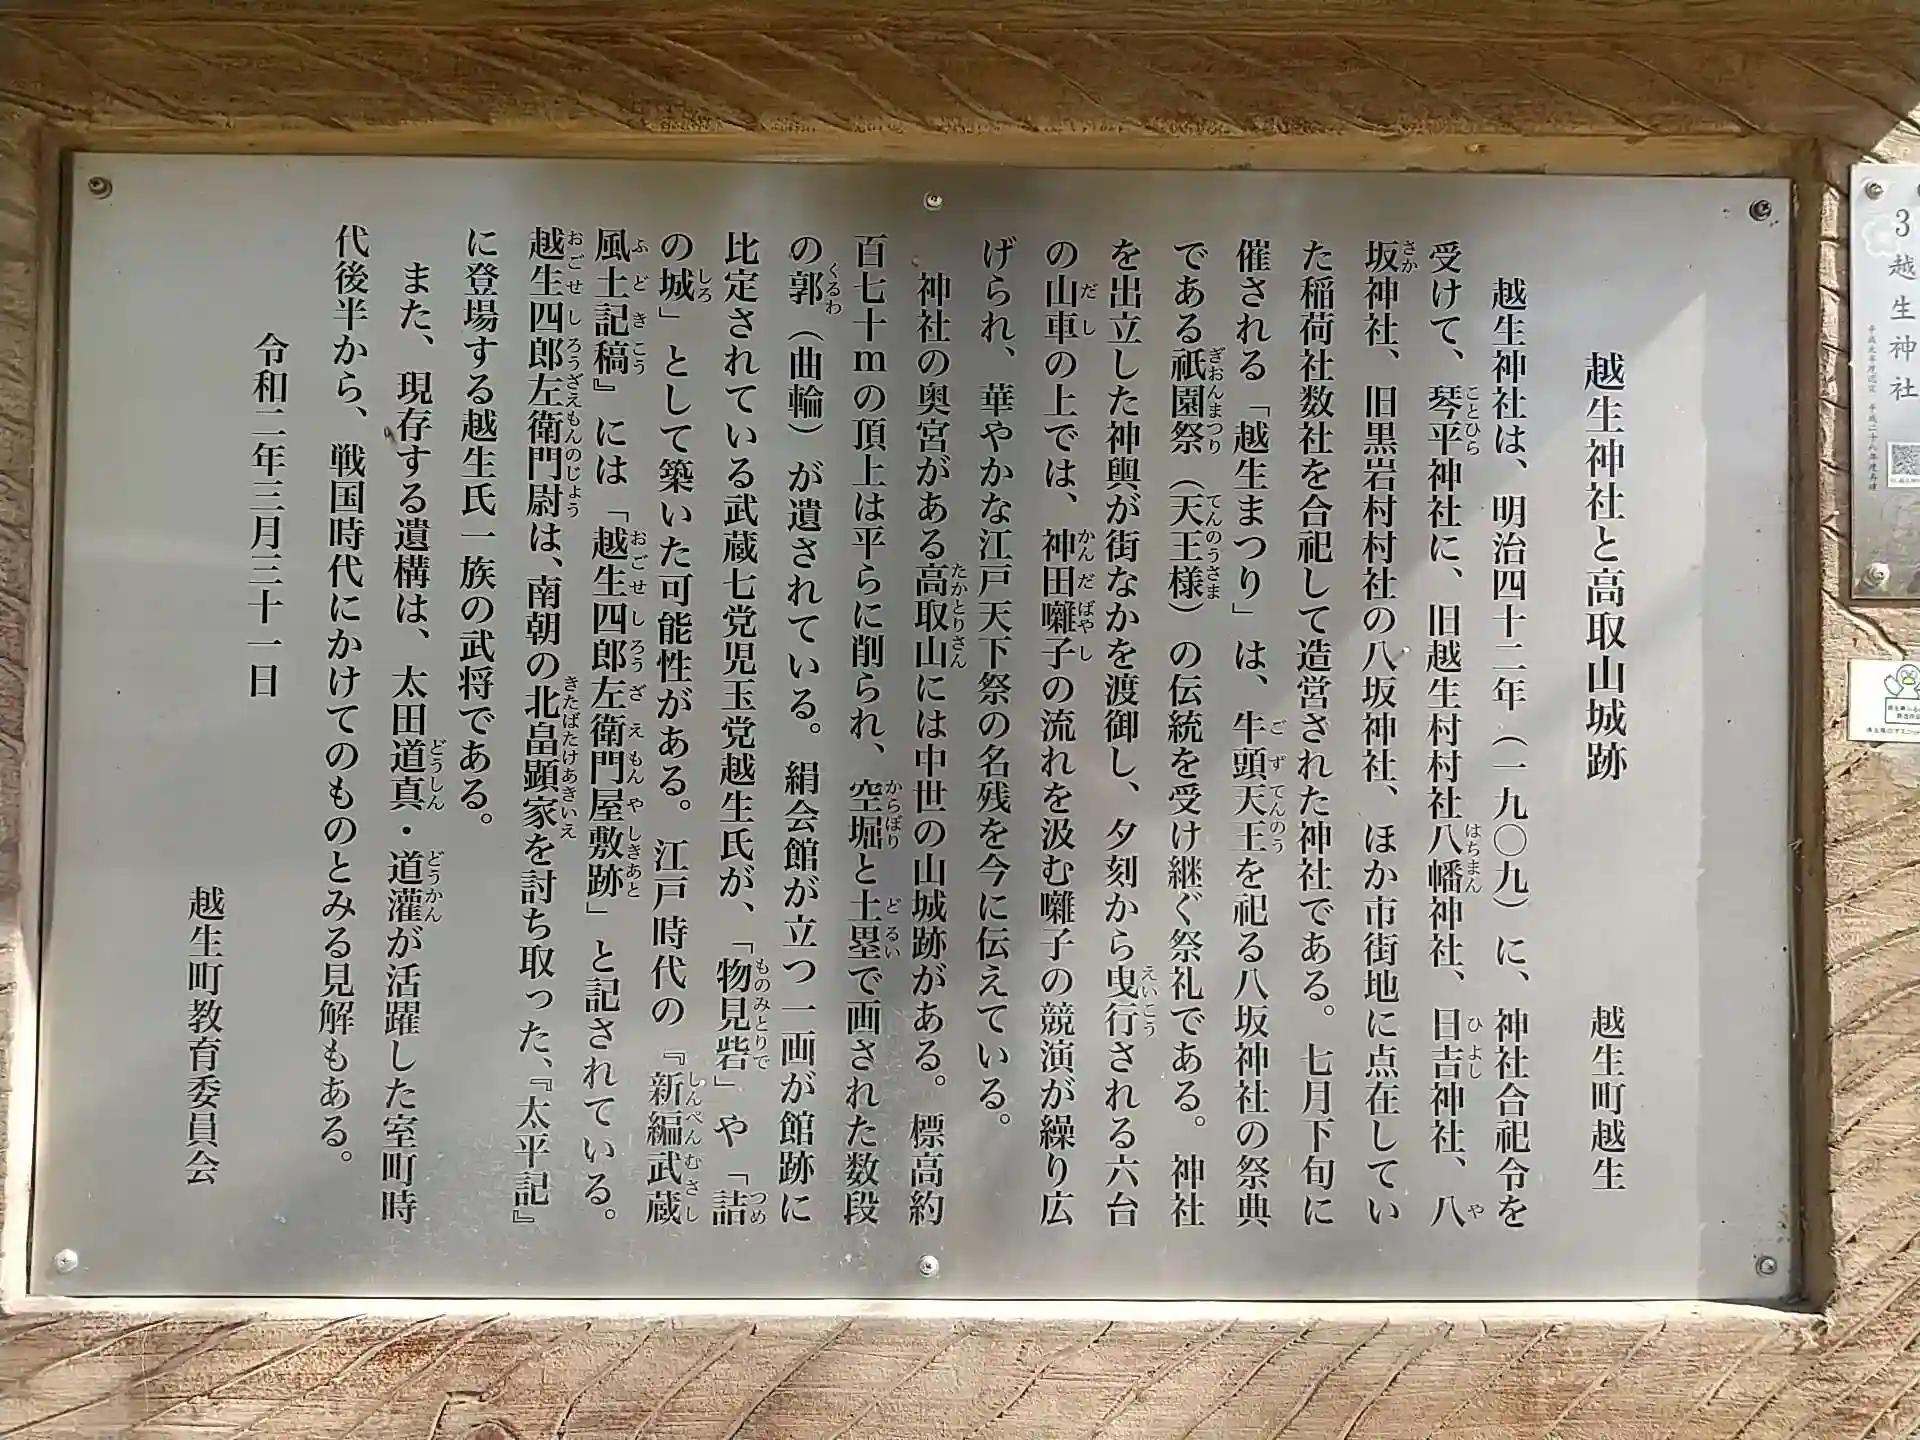 越生神社と高取山城跡　越生町越生
越生神社は、明治四十二年（一九〇九）に、神社合祀令を
受けて、琴平神社に、旧越生村村社八幡神社、日吉神社、八
坂神社、旧黒岩村村社の八坂神社、ほか市街地に点在してい
た稲荷社数社を合祀して造営された神社である。七月下旬に
催される「越生まつり」は、牛頭天王を祀る八坂神社の祭典
である祇園祭（天王様）の伝統を受け継ぐ祭礼である。神社
を出立した神輿が街なかを渡御し、夕刻から曳行される六台
の山車の上では、神田囃子の流れを汲む囃子の競演が繰り広
げられ、華やかな江戸天下祭の名残を今に伝えている。
神社の奥宮がある高取山には中世の山城跡がある。標高約
百七十ｍの頂上は平らに削られ、空堀と土塁で画された数段
の郭（曲輪）が遺されている。絹会館が立つ一画が館跡に
比定されている武蔵七党児玉党越生氏が、「物見砦」や「詰
の城」として築いた可能性がある。江戸時代の『新編武蔵
風土記稿』には「越生四郎左衛門屋敷跡」と記されている。
越生四郎左衛門尉は、南朝の北畠顕家を討ち取った、『太平記』
に登場する越生氏一族の武将である。
また、現存する遺構は、太田道真・道灌が活躍した室町時
代後半から、戦国時代にかけてのものとみる見解もある。
令和二年三月三十一日
越生町教育委員会
3 越生神社